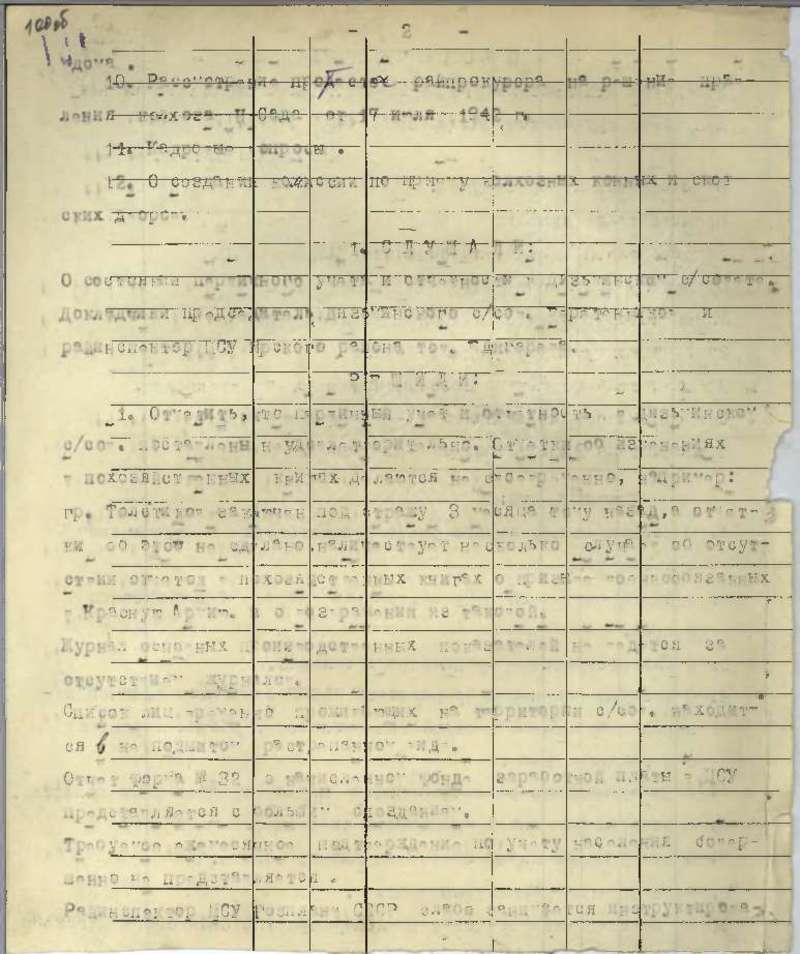 108об
- 2 -
10. Рассмотрение протеста райпрокурора на решение прав-
ления колхоза от 17 июля 1942 г.
11. Кадровые вопросы.
12. О создании комиссии по приему колхозных конных и скот
ских дворов.
1. С Л У Ш А Л И:
О состоянии первичного учета и отчетности в Дизьминском с/совете.
Докладчики председатель Дизьминского с/сов. и
райинспектор ЦСУ Ярского района тов.
Р Е Ш И Л И:
1. Отметить, что первичный учет и отчетность в Дизьминском
с/сов. поставлены неудовлетворительно. Отметки об изменениях
в похозяйственных книгах делаются не своевременно, например:
гр. заключен под стражу 3 месяца тому назад, а отмет-
ки об этом не сделано, наличествует несколько случаев об отсут-
ствии отметок в похозяйственных книгах о призыве военнообязанных
в Красную Армию и о возвращении из таковой.
Журнал основных производственных показателей не ведется за
отсутствием журналов.
Список лиц временно проживающих на территории с/сов. находит-
ся в не подшитом растрепанном виде.
Отчет форма № 32 о начисленном фонде заработной платы в ЦСУ
представляется с большим опозданием.
Требуемое ежемесячное подтверждение по учету населения совер-
шенно не представляется.
Райинспектор ЦСУ Госплана СССР слабо занимается инструктирова-